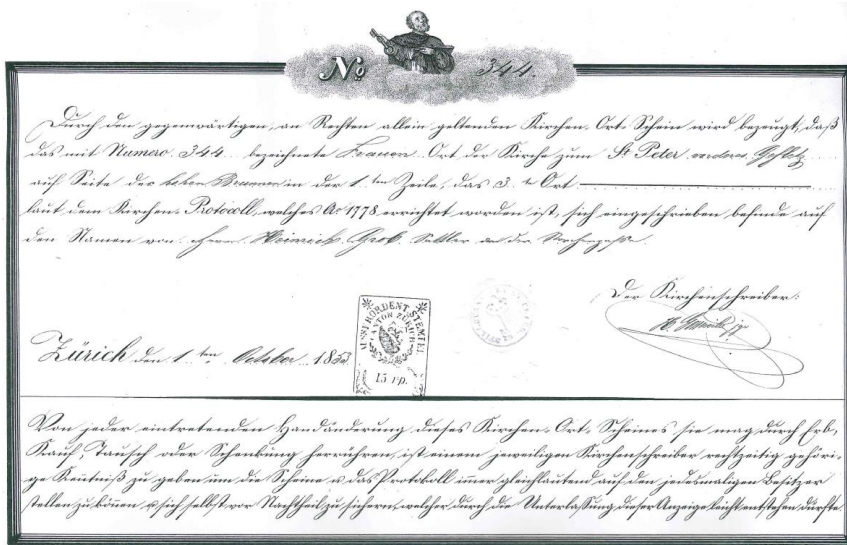 No 344.
Durch den gegenwärtigen, an Rechten allein geltenden Kirchen-Ort-Schein wird bezeugt, daß
das mit Numero 344 bezeichnete Frauen Ort der Kirche zum St Peter vorderes
auf Seite des in der 1. ten Zeile, das 3. te Ort
laut dem Kirchen-Protocoll, welches Ao 1778 errichtet worden ist, sich eingeschrieben befinde auf
den Namen von: Herrn Heinrich Grob, Sattler an der
Der Kirchenschreiber:
AUSSERORDENT. STEMPEL
CANTON ZÜRICH
15 rp.
Zürich den 1. ten October 185
Von jeder eintretenden Handänderung dieses Kirchen-Ort-Scheines sie mag durch Erb,
Kauf, Tausch oder Schenkung herrühren, ist einem jeweiligen Kirchenschreiber rechtzeitig gehöri-
ge Kentniß zu geben um die Scheine u. das Protokoll imer gleichlautend auf den jedesmaligen Besitzer
stellen zu können, u. sich selbst vor Nachtheil zu sichern, welcher durch die Unterlaßung dieser Anzeige leicht entstehen dürfte.